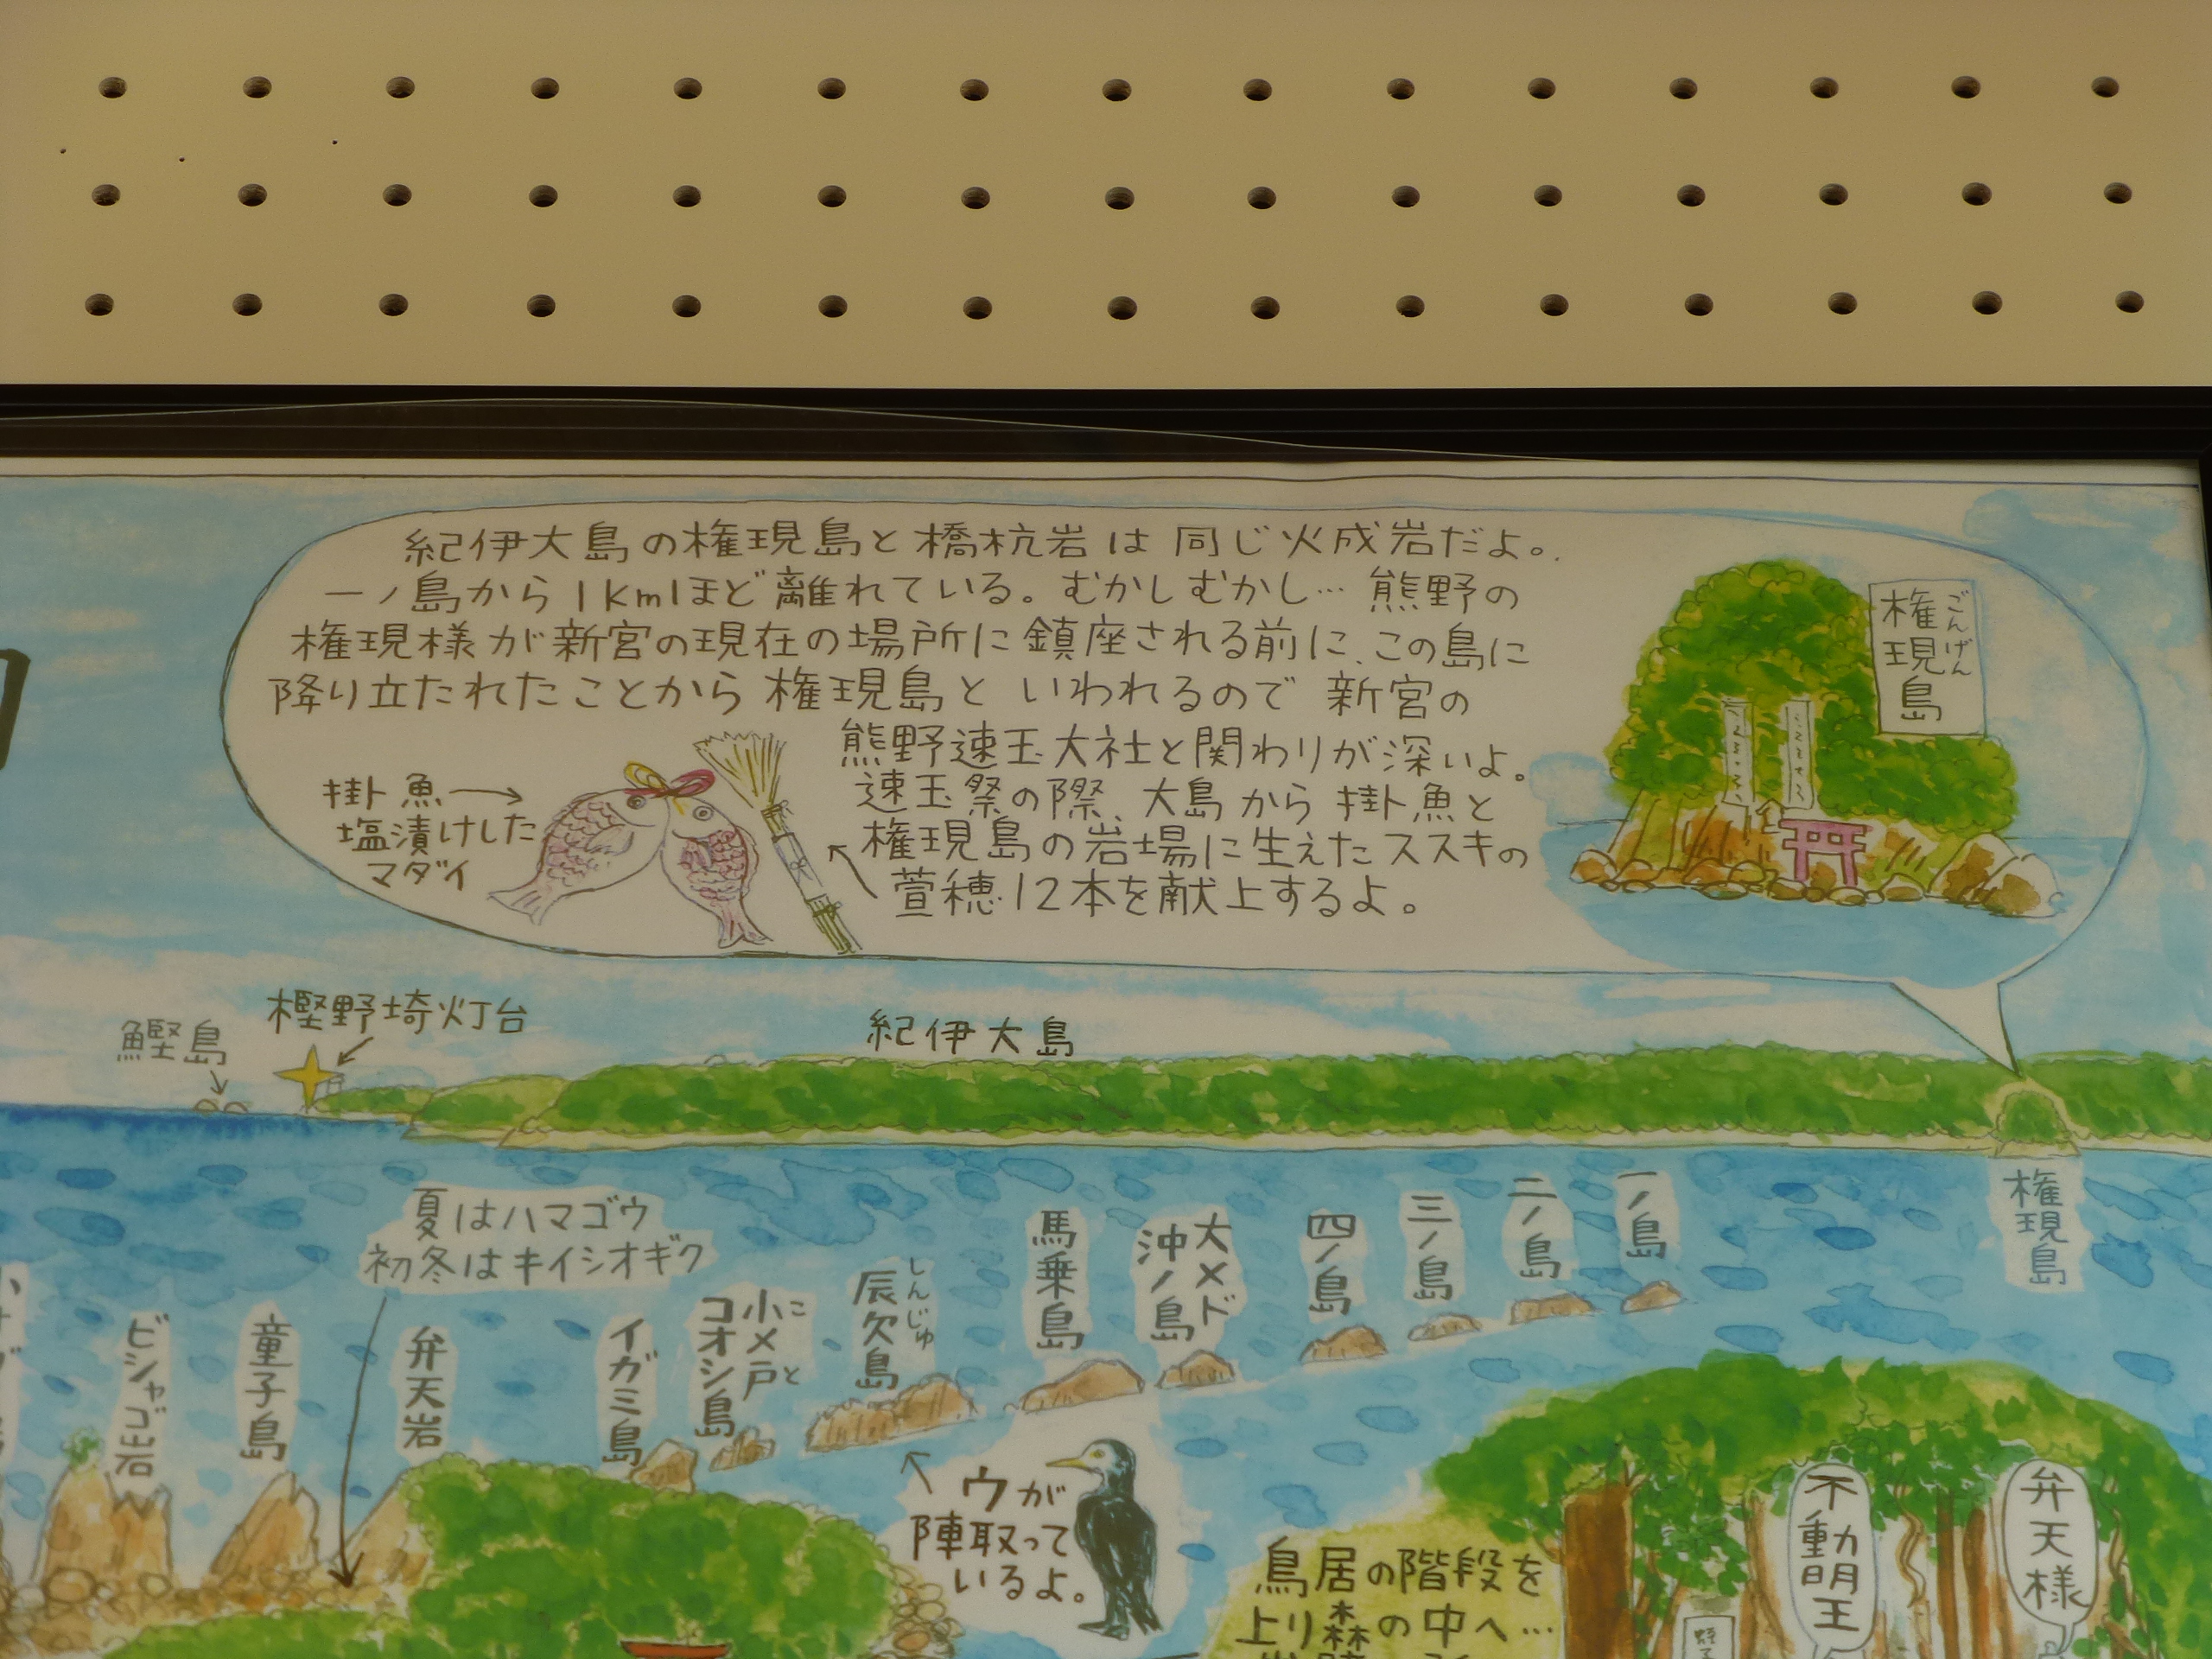 紀伊大島の権現島と橋杭岩は同じ火成岩だよ。
一ノ島から1kmほど離れている。むかしむかし…熊野の
権現様が新宮の現在の場所に鎮座される前に、この島に
降り立たれたことから権現島といわれるので新宮の
熊野速玉大社と関わりが深いよ。
速玉祭の際、大島から掛魚と
権現島の岩場に生えたススキの
萱穂12本を献上するよ。
掛魚
塩漬けした
マダイ
権現島
ごんげん
鰹島
樫野埼灯台
紀伊大島
権現島
夏はハマゴウ
初冬はキイシオギク
一ノ島
二ノ島
三ノ島
四ノ島
大メド
沖ノ島
馬乗島
しんじゅ
辰欠島
こと
小メ戸
コオシ島
イガミ島
弁天岩
童子島
ビシャゴ岩
ウが
陣取って
いるよ。
鳥居の階段を
上り森の中へ…
不動明王
弁天様